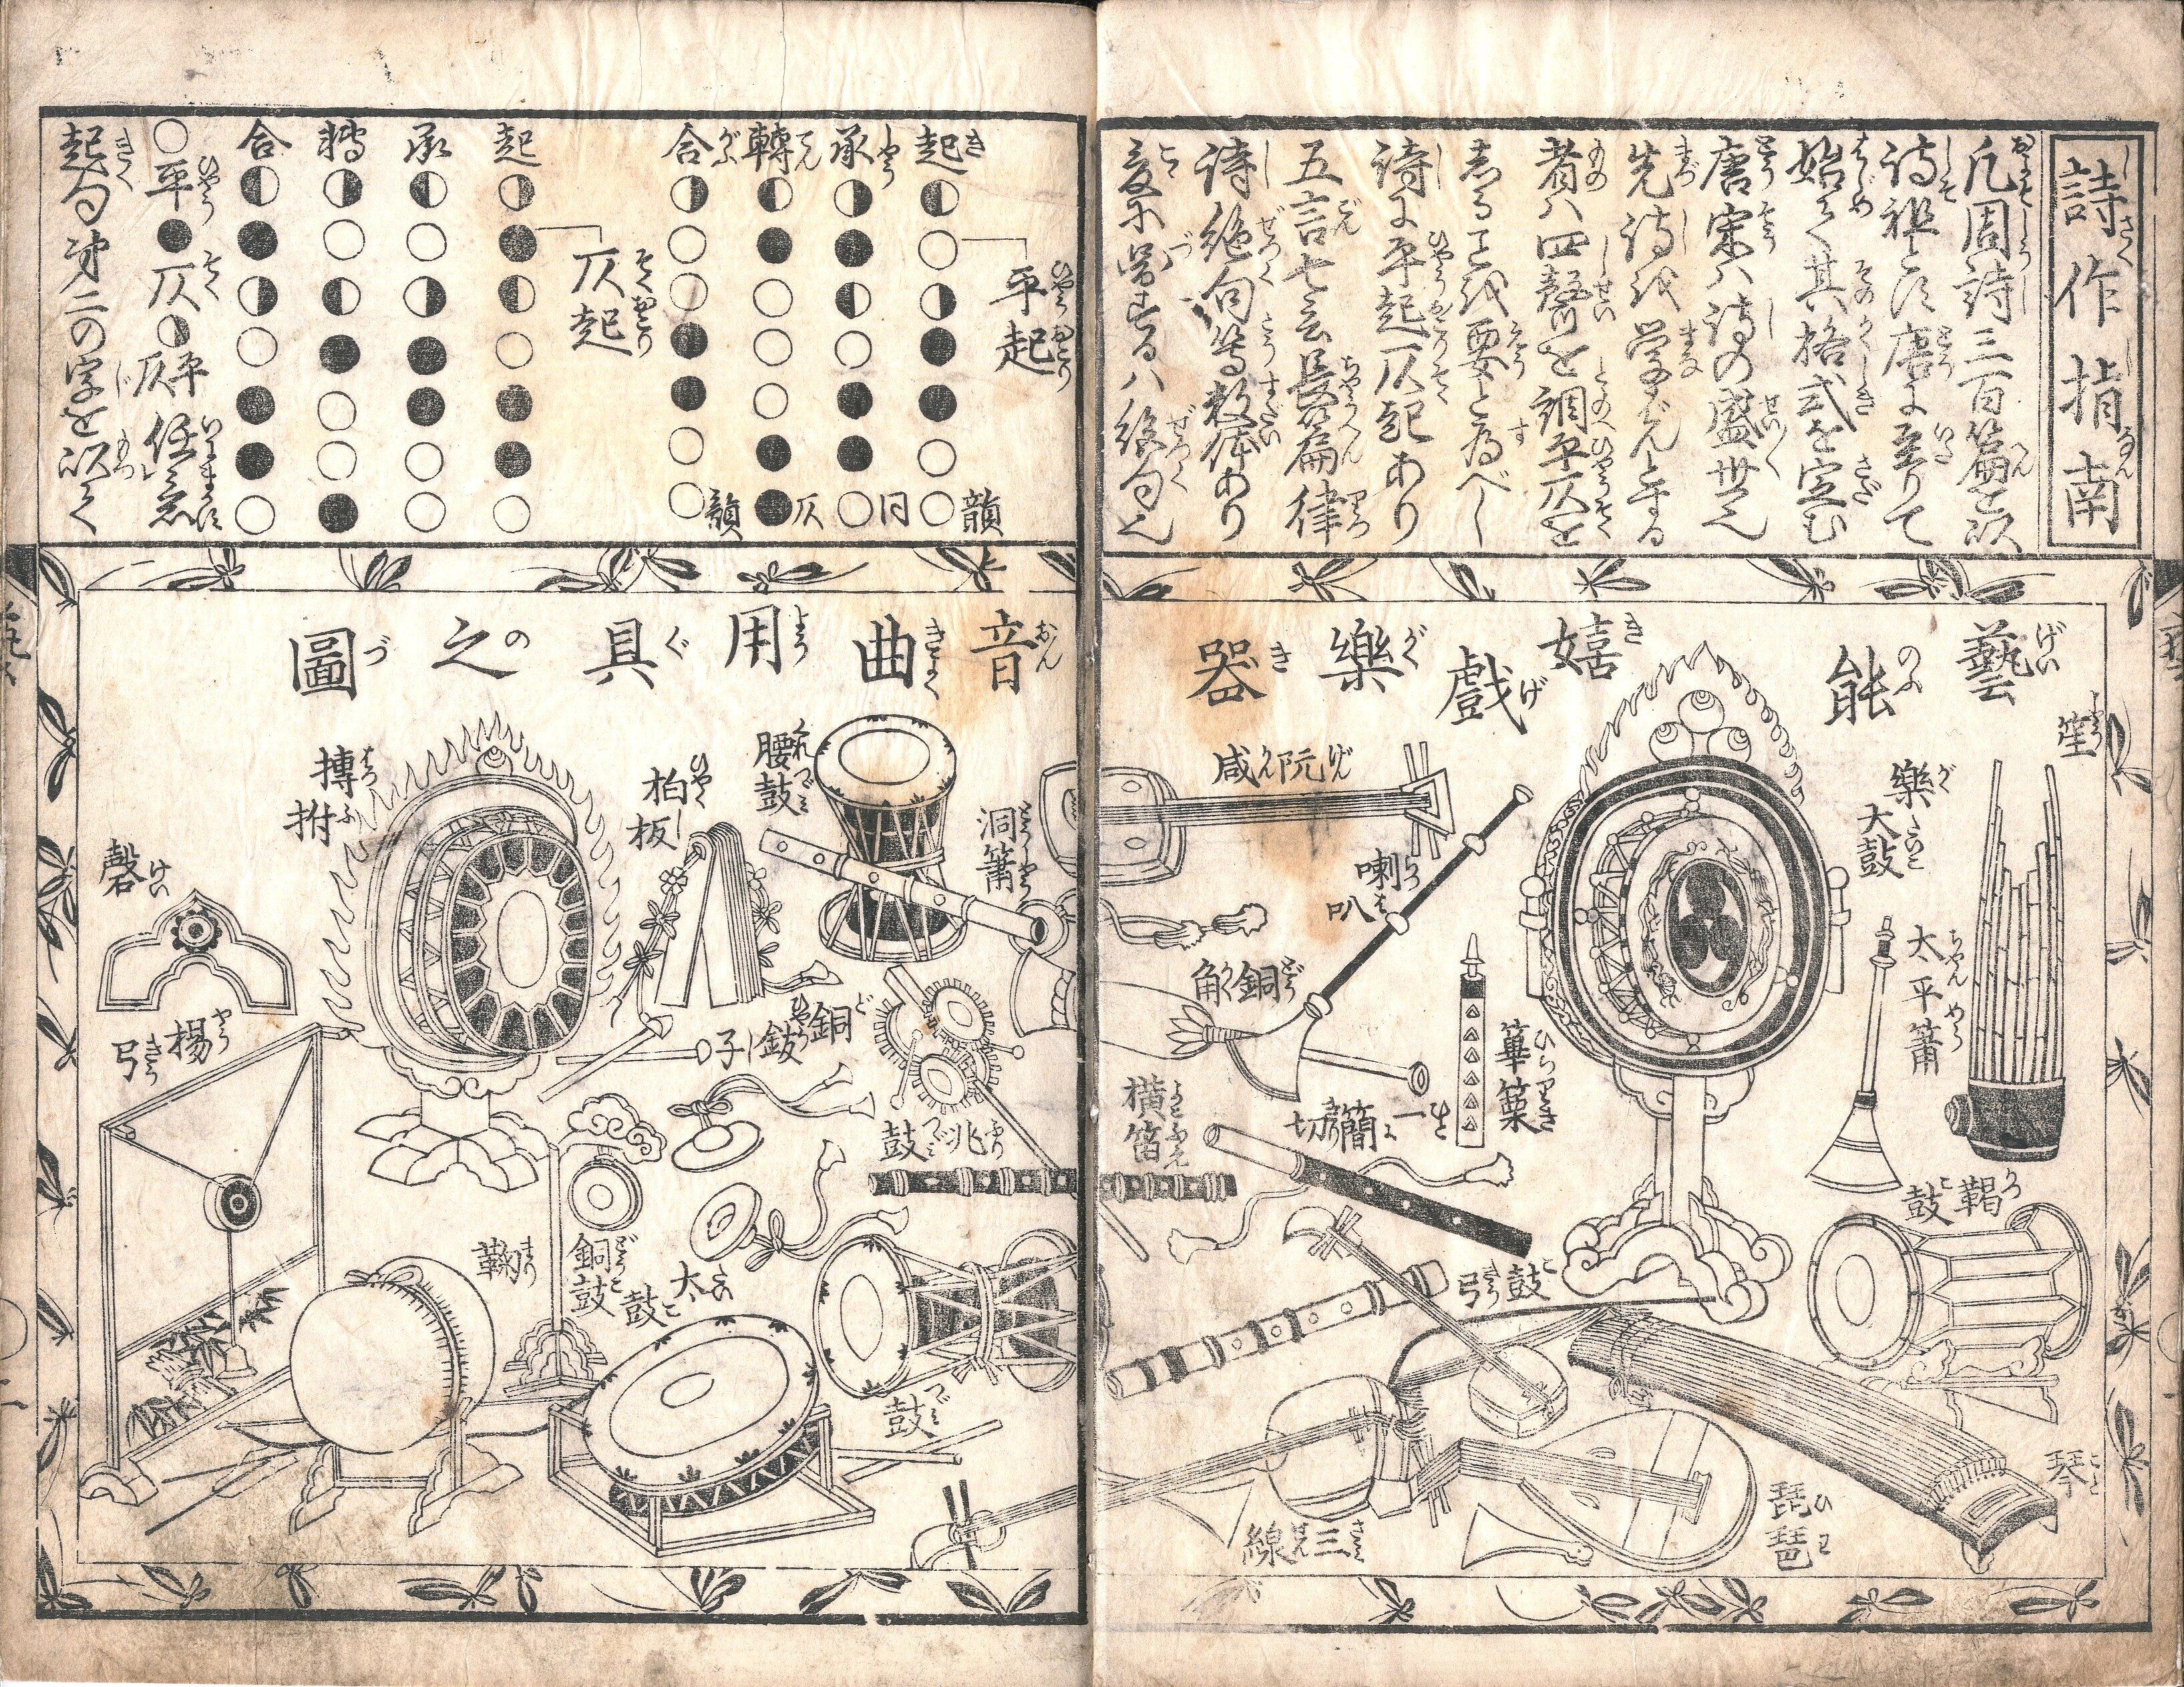 詩作指南
凡周詩三百篇を以
詩祖とす唐に至りて
始て其格式を定む
唐宋ハ詩の盛世也
先詩を学ばんとする
者ハ四聲を調平仄を
志るを要と為べし
詩に平起仄起あり
五言七言長篇律
詩絶句等数体あり
爰に図するハ絶句也
平起
起◐○◑●●○○韻
承◑●◐○●●○同
轉◐●○○○●●仄
合◑○○●●○○韻
仄起
起◑●◐○●●○
承◐○◑●●○○
轉◑○◐●○○●
合◐●◑○●●○
○平●仄◑平仄任意
起句第二の字を以て
藝能嬉戯樂器
音曲用具之圖
笙
樂大鼓
太平簫
鞨鼓
琴
琵琶
篳篥
鼓弓
三線
一節切
咸阮
喇叭
銅角
横笛
洞簫
腰鼓
柏板
銅鈸子
兆鼓
鼓
太鼓
銅鼓
鞠
搏拊
磬
楊弓